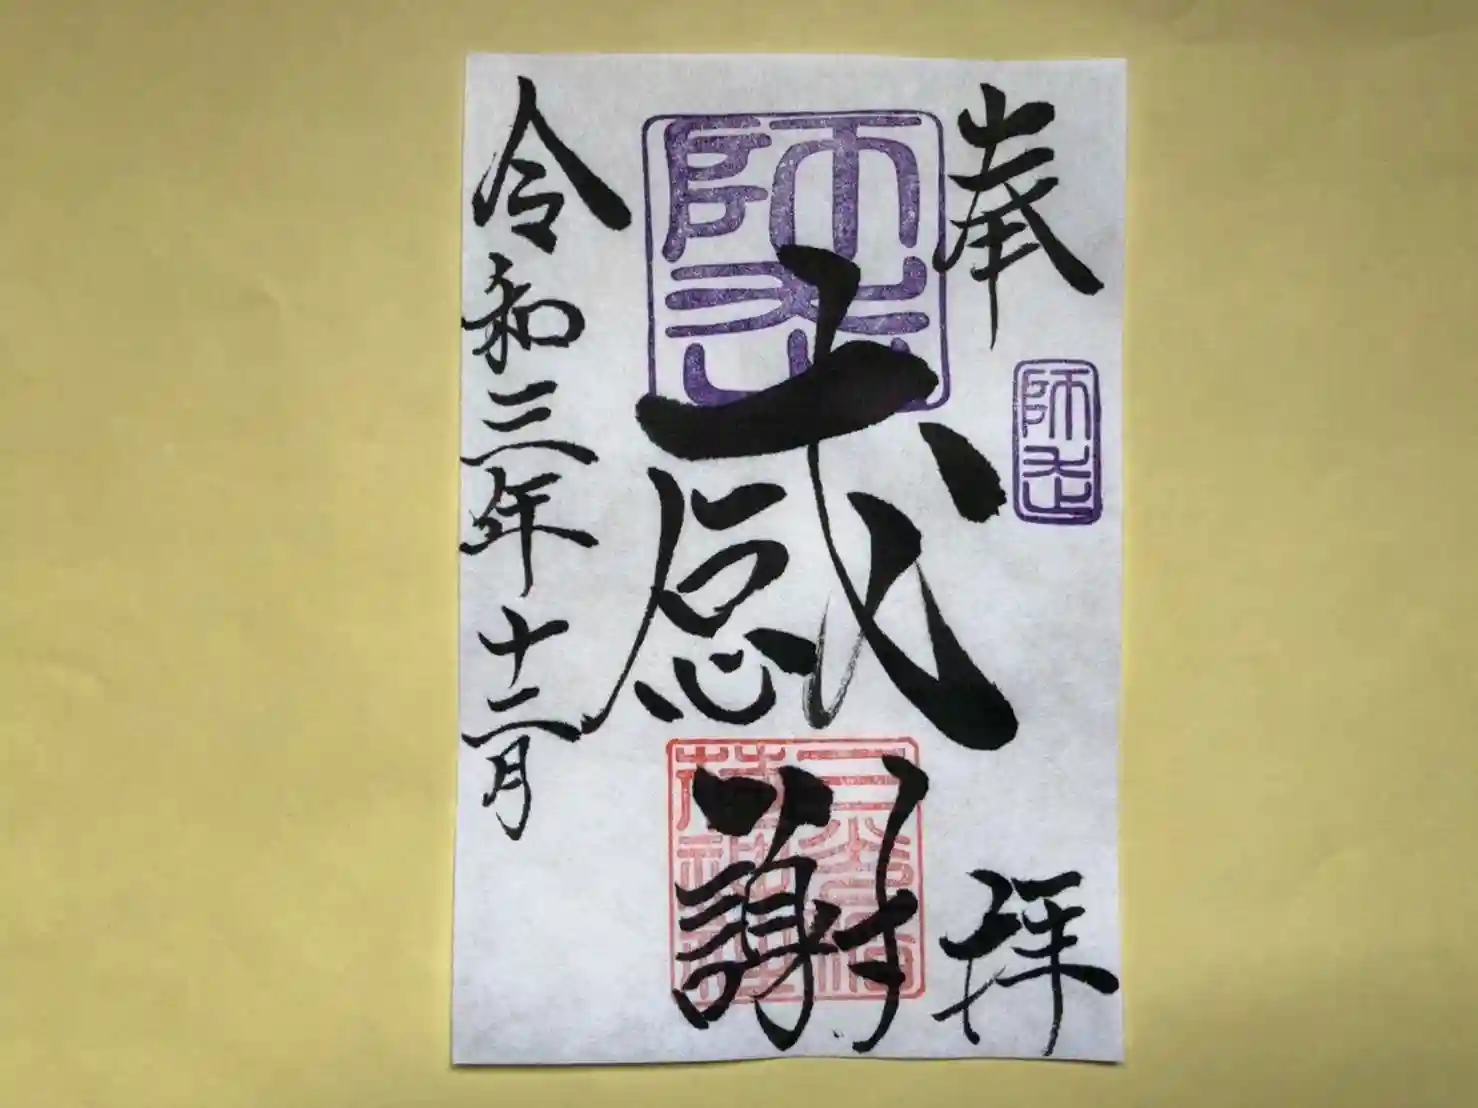 奉拝
師走
師走
感謝
令和三年十二月